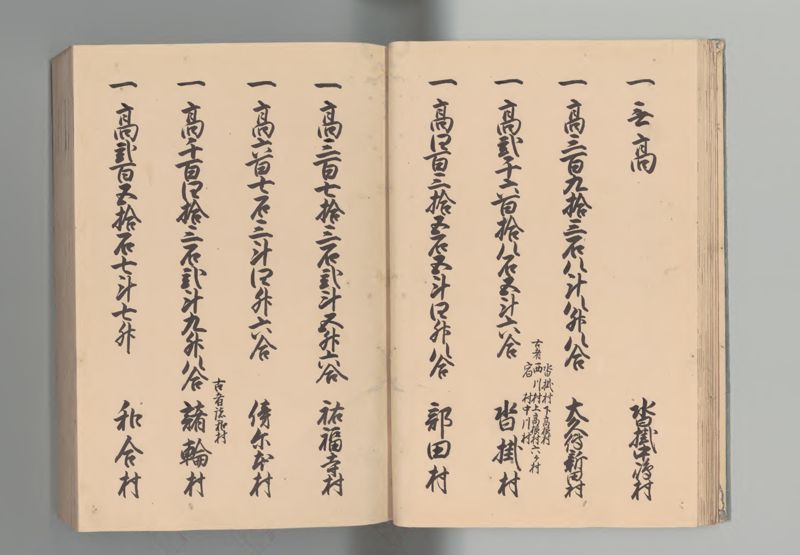 一 無高 沓掛中嶋村
一 高三百九拾三石八斗八升八合 大久傳新田村
一 高貳千六百拾八石五斗六合 沓掛村
沓掛村 下高根村
古者 西川村 上高根村 六ケ村
宿村 中川村
一 高四百三拾五石五斗四升八合 部田村
一 高三百七拾三石貳斗五升六合 祐福寺村
一 高六百七石三斗四升六合 傍尓本村
一 高千百四拾三石貳斗九升八合 諸輪村
古者
一 高貳百五拾石七斗七升 和合村